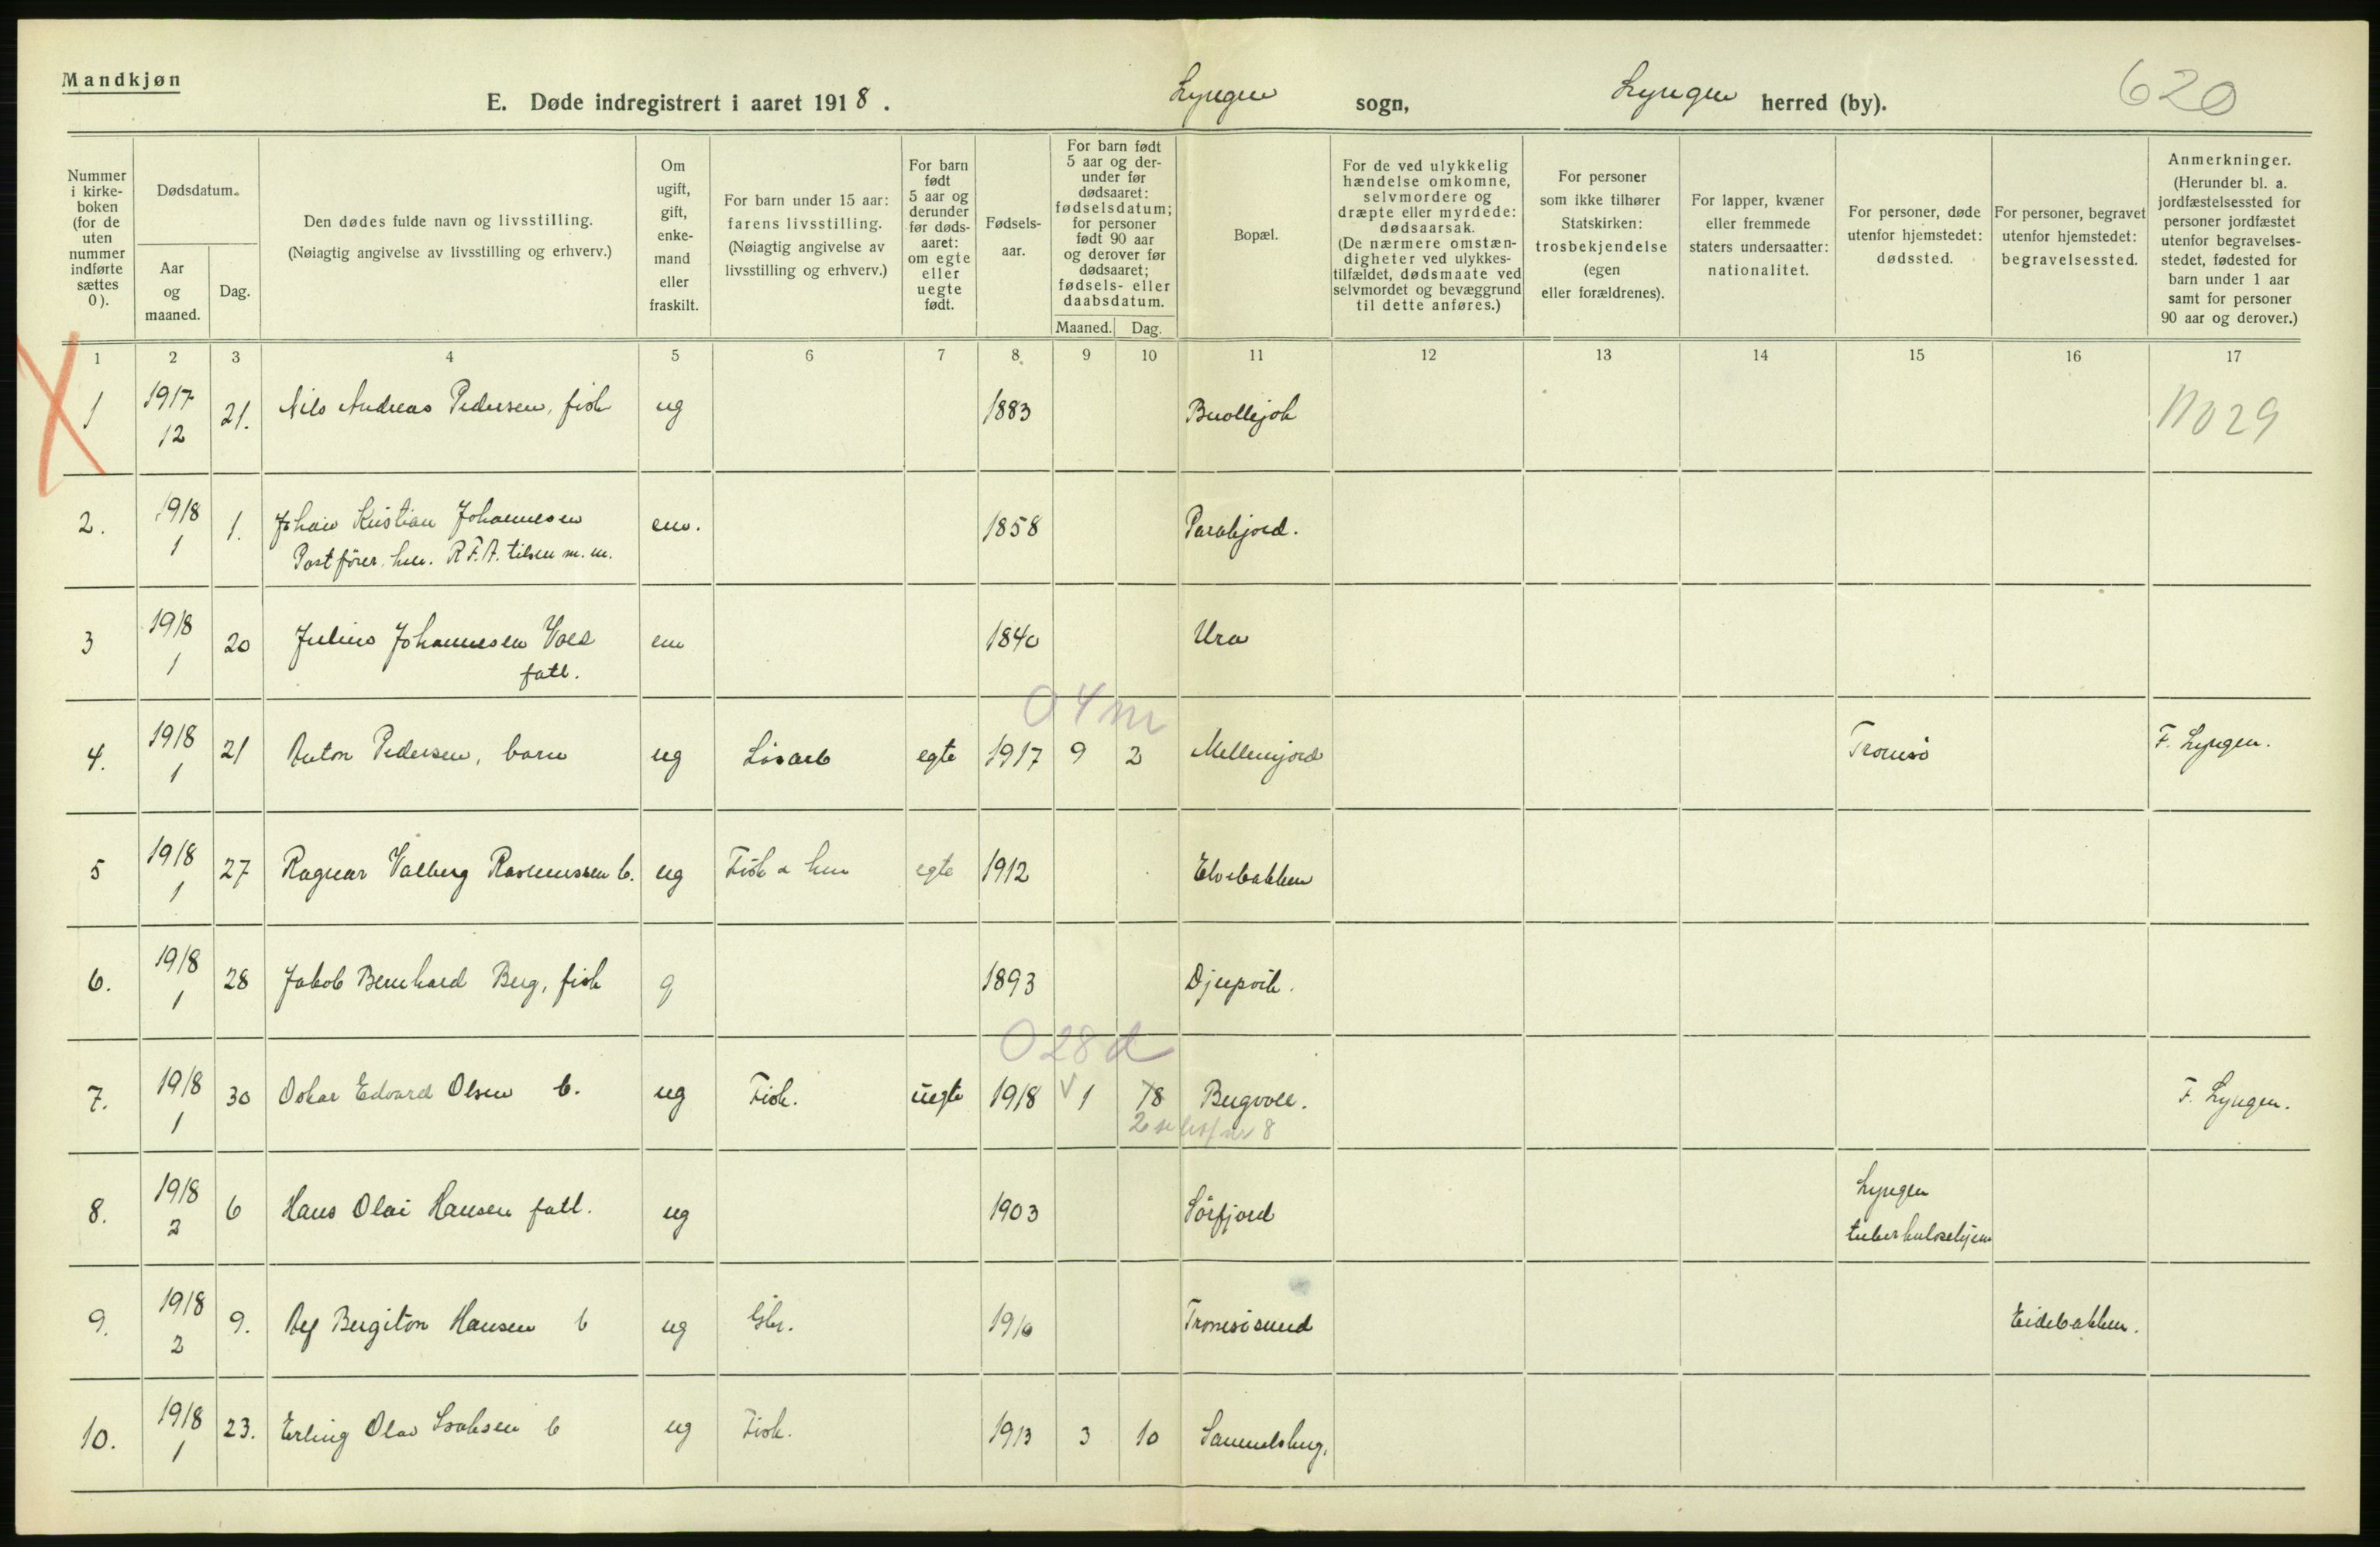 Mandkjøn
E. Døde indregistrert i aaret 1918. Lyngen sogn, Lyngen herred (by). 620
Nummer i kirke- boken (for de uten nummer indførte sættes 0).
Dødsdatum.
Aar og maaned.
Dag.
Den dødes fulde navn og livsstilling.
(Nøiagtig angivelse av livsstilling og erhverv.)
Om ugift, gift, enke- mand eller fraskilt.
For barn under 15 aar: farens livsstilling. (Nøiagtig angivelse av livsstilling og erhverv.)
For barn født 5 aar og derunder før døds- aaret: om egte eller uegte født.
Fødsels- aar.
For barn født 5 aar og der- under før dødsaaret: fødselsdatum; for personer født 90 aar og derover før dødsaaret; fødsels- eller daabsdatum.
Maaned. Dag.
Bopæl.
For de ved ulykkelig hændelse omkomne, selvmordere og dræpte eller myrdede: dødsaarsak. (De nærmere omstæn- digheter ved ulykkes- tilfældet, dødsmaate ved selvmordet og bevæggrund til dette anføres.)
For personer som ikke tilhører Statskirken: trosbekjendelse (egen eller forældrenes).
For lapper, kvæner eller fremmede staters undersaatter: nationalitet.
For personer, døde utenfor hjemstedet: dødssted.
For personer, begravet utenfor hjemstedet: begravelsessted.
Anmerkninger. (Herunder bl. a. jordfæstelsessted for personer jordfæstet utenfor begravelses- stedet, fødested for barn under 1 aar samt for personer 90 aar og derover.)
1 2 3 4 5 6 7 8 9 10 11 12 13 14 15 16 17
1 1917 12 21. Nils Andreas Pedersen, fisk ug 1883 Buollejok 11029
2. 1918 1 1. Johan Kristian Johannesen em. 1858 Parakjord.
Postfører, hm. R.F.A. tilsm m. m.
3 1918 1 20 Julius Johannesen Voll em 1840 Ura
fatl.
04m
4. 1918 1 21 Anton Pedersen, barn ug Løsarb egte 1917 9 2 Mellemjord Tromsö F. Lyngen.
5 1918 1 27 Ragnar Valberg Rasmussen b. ug Fisk egte 1912 Elvebakken
6. 1918 1 28 Jakob Bernhard Berg, fisk g 1893 Djupvik.
028d
7. 1918 1 30 Oskar Edvard Olsen b. ug Fisk. uegte 1918 1 8 Bergvoll. F. Lyngen.
8. 1918 2 6 Hans Olai Hansen fatl. ug 1903 Sörfjord Lyngen
tuberkulosehjem
9. 1918 2 9. Bergiton Hansen b ug Gbr. 1910 Tromsösund Eidebakken.
10. 1918 1 23. Erling Olav Isaksen b ug Fisk. 1913 3 10 Samuelsberg.